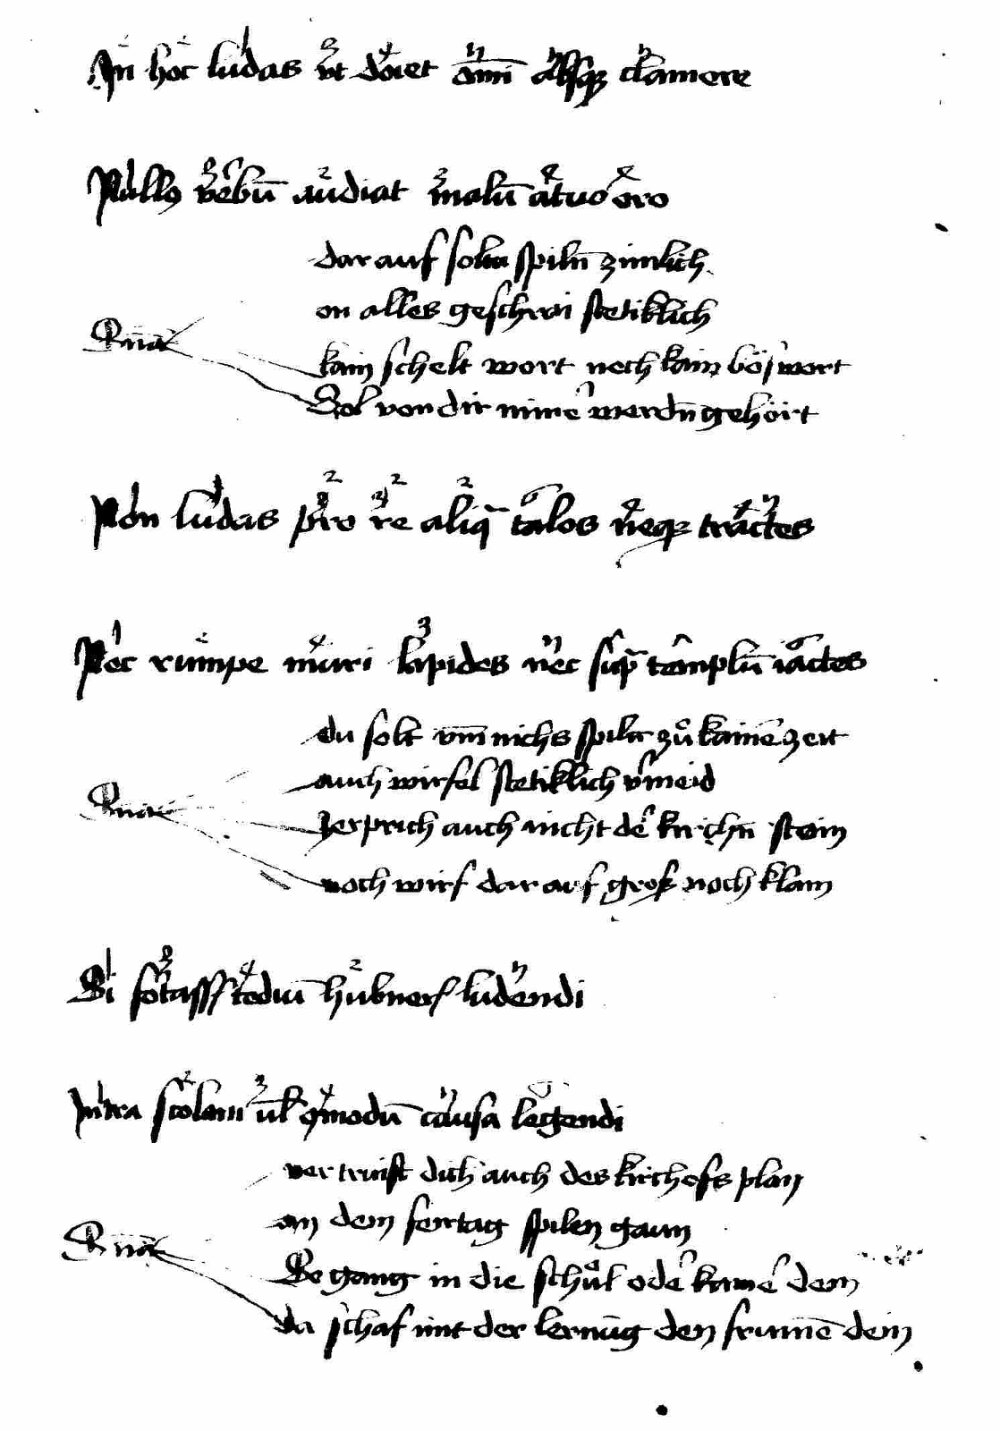 In hoc ludas ut docet omni absque clamere
Nullus verbum audiat malum a tuo oro
dar auf soltu spiln zimlich
on alles geschrai stetiklich
kain schelt wort noch kain bös wort
Sol von dir nime werdn gehört
Non ludas pro re aliqua talos neque tractes
Nec rumpe muri lapides nec supra templum iactes
du solt um nichs spiln zu kaine zeit
auch wirfel stetiklich vermeid
Zerprich auch nicht der kirchn stein
noch wirf dar auf gros noch klain
Si fortassis tedium hubneris ludendi
Intra scolam vel quemodum causa legendi
ver truist dich auch des kirchofs plan
an dem feirtag spilen gaun
So gang in die schul oder kamer dein
da schaf mit der lernung den frumen dein